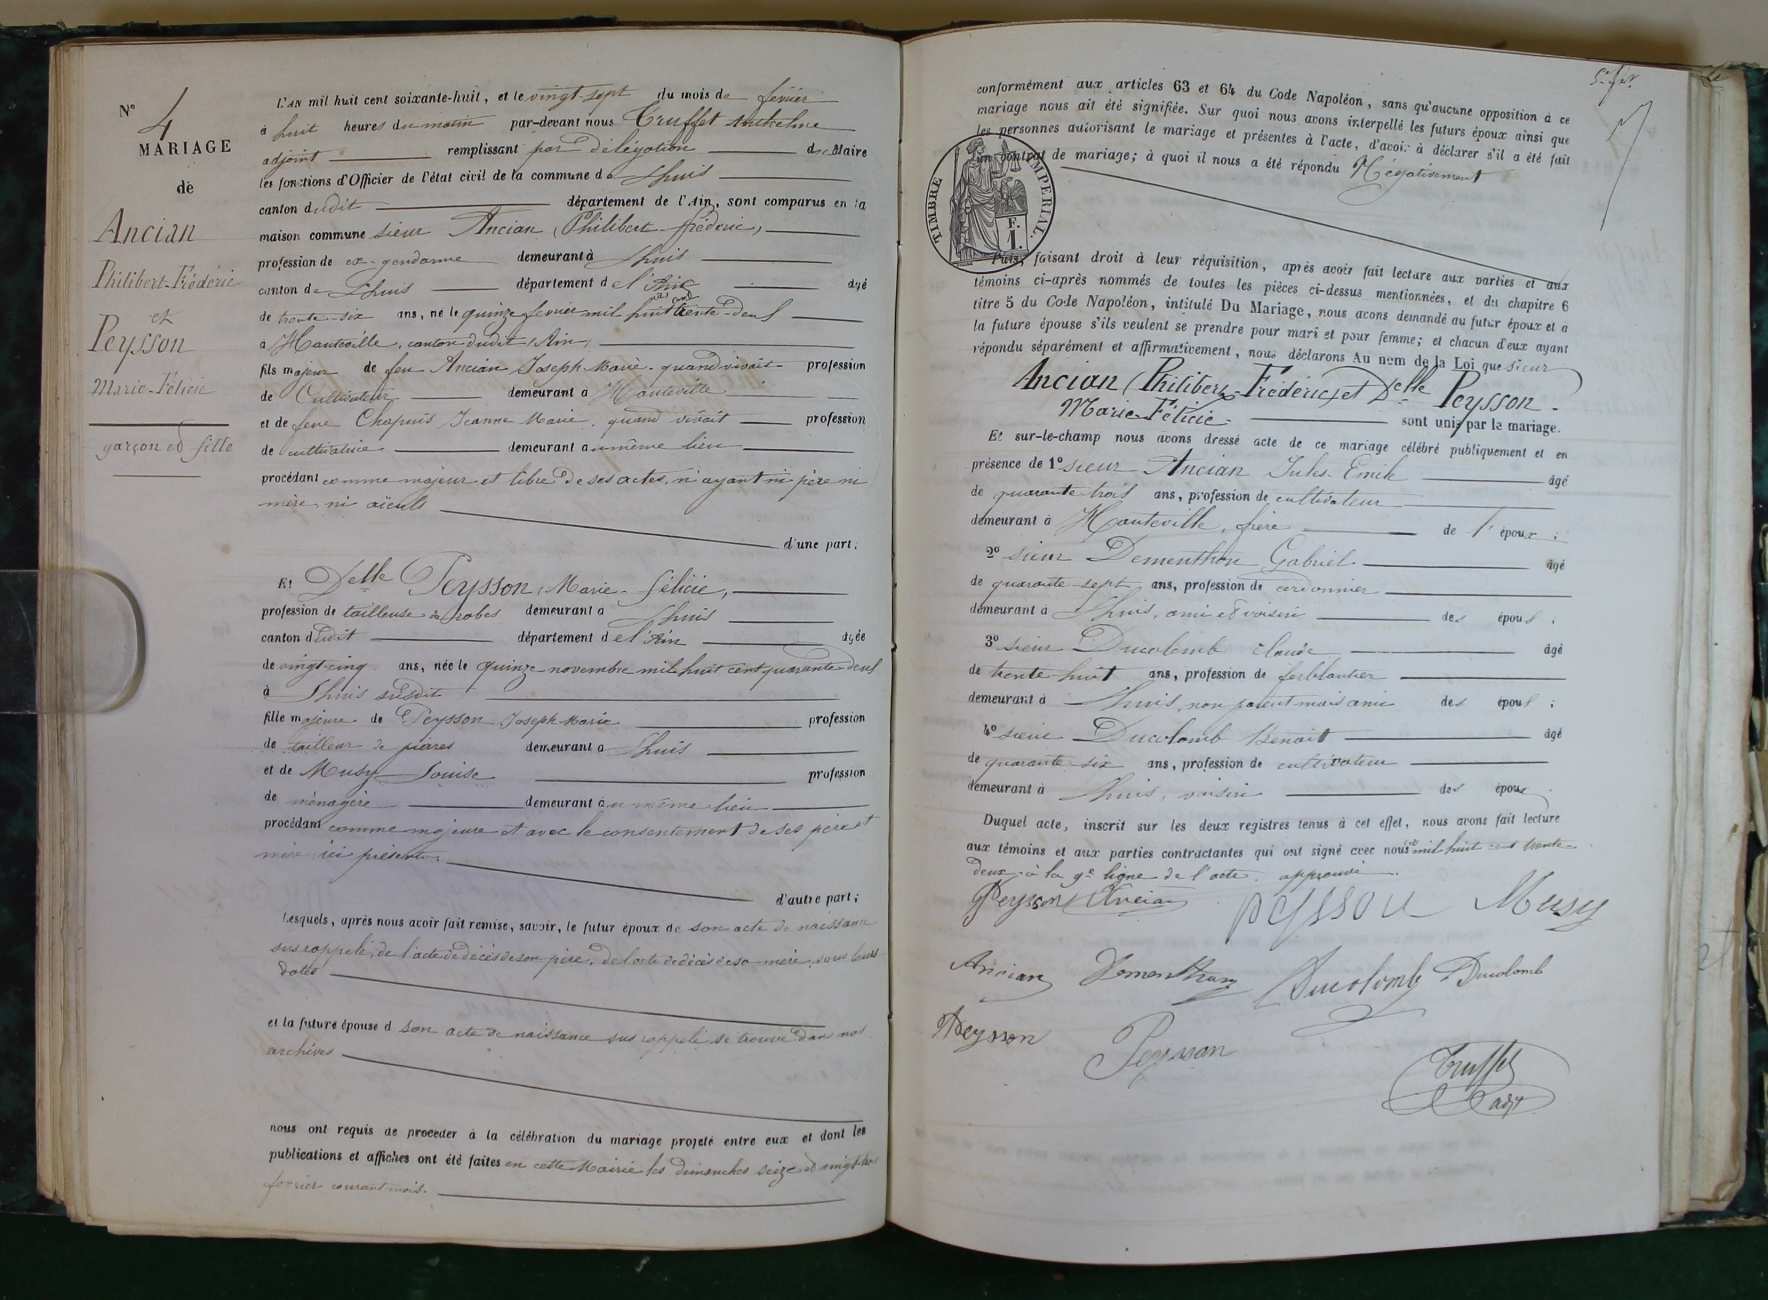 N° 4
MARIAGE
de
Ancian
Philibert-Frédéric
et
Peysson
Marie-Félicie
garçon et fille
L'AN mil huit cent soixante-huit, et le vingt-sept du mois de février
à huit heures du matin par-devant nous Truffet Anthelme
adjoint remplissant par délégation du Maire
les fonctions d'Officier de l'état civil de la commune de Lhuis
canton dudit département de l'Ain, sont comparus en la
maison commune sieur Ancian (Philibert-frédéric)
profession de ex-gendarme demeurant à Lhuis
canton de Lhuis département de l'Ain âgé
de trente-six ans, né le quinze février mil huit cent trente-deux
à Hauteville, canton dudit (Ain)
fils majeur de feu Ancian Joseph-Marie quand vivait profession
de Cultivateur demeurant à Hauteville
et de feue Chapuis Jeanne Marie, quand vivait profession
de cultivatrice demeurant au même lieu
procédant comme majeur et libre de ses actes, n'ayant ni père ni
mère, ni aïeuls
d'une part;
Et Delle Peysson (Marie-félicie)
profession de tailleuse de robes demeurant à Lhuis
canton dudit département de l'Ain âgée
de vingt-cinq ans, née le quinze novembre mil huit cent quarante deux
à Lhuis susdit
fille majeure de Peysson Joseph-Marie profession
de tailleur de pierres demeurant à Lhuis
et de Musy Louise profession
de ménagère demeurant au même lieu
procédant comme majeure et avec le consentement de ses père et
mère ici présents
d'autre part;
Lesquels, après nous avoir fait remise, savoir, le futur époux de son acte de naissance
sus rappelé, de l'acte de décès de son père, de l'acte de décès de sa mère, sous leurs
dates
et la future épouse d son acte de naissance sus rappelé se trouve dans nos
archives
nous ont requis de procéder à la célébration du mariage projeté entre eux et dont les
publications et affiches ont été faites en cette Mairie les dimanches seize et vingt-trois
février courant mois.
conformément aux articles 63 et 64 du Code Napoléon, sans qu'aucune opposition à ce
mariage nous ait été signifiée. Sur quoi nous avons interpellé les futurs époux ainsi que
les personnes autorisant le mariage et présentes à l'acte, d'avoir à déclarer s'il a été fait
un contrat de mariage; à quoi il nous a été répondu Négativement
TIMBRE IMPERIAL
F.
1.
Puis, faisant droit à leur réquisition, après avoir fait lecture aux parties et aux
témoins ci-après nommés de toutes les pièces ci-dessus mentionnées, et du chapitre 6
titre 5 du Code Napoléon, intitulé Du Mariage, nous avons demandé au futur époux et à
la future épouse s'ils veulent se prendre pour mari et pour femme; et chacun d'eux ayant
répondu séparément et affirmativement, nous déclarons Au nom de la Loi que sieur
Ancian (Philibert-Frédéric) et Delle Peysson
Marie-Félicie sont unis par le mariage.
Et sur-le-champ nous avons dressé acte de ce mariage célébré publiquement et en
présence de 1° sieur Ancian Jules-Emile âgé
de quarante-trois ans, profession de cultivateur
demeurant à Hauteville, frère de l' époux;
2° sieur Dementhon Gabriel âgé
de quarante-sept ans, profession de cordonnier
demeurant à Lhuis, ami et voisin des époux;
3° sieur Ducolomb Claude âgé
de trente-huit ans, profession de ferblantier
demeurant à Lhuis, non parent mais ami des époux;
4° sieur Ducolomb Benoit âgé
de quarante-six ans, profession de cultivateur
demeurant à Lhuis, voisin des époux
Duquel acte, inscrit sur les deux registres tenus à cet effet, nous avons fait lecture
aux témoins et aux parties contractantes qui ont signé avec nous mil huit cent trente-
deux à la 9e ligne de l'acte approuvé
Peysson Ancian peysson Musy
Ancian Dementhon Ducolomb Ducolomb
Peysson Peysson
Truffet
adjt